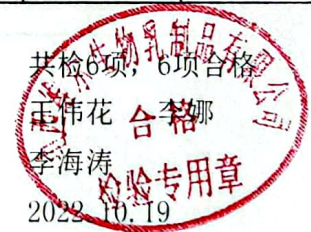 共检6项，6项合格
王伟花 李娜
李海涛
2022.10.19
生物乳制品有限公司
合格
检验专用章